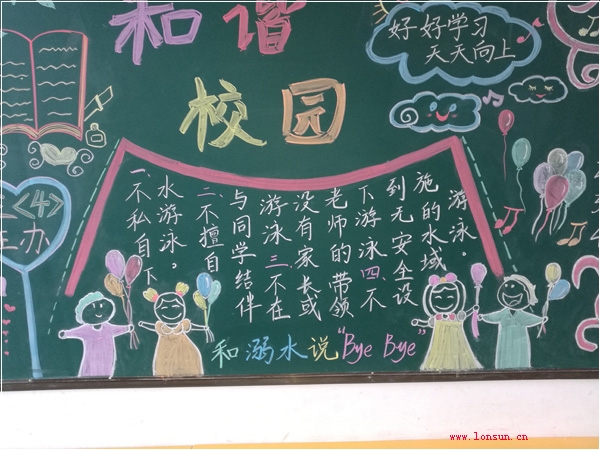 和谐
校园
好好学习
天天向上
<4>
办
一.不私自下
水游泳。
二.不擅自
与同学结伴
游泳三.不在
没有家长或
老师的带领
下游泳四.不
到无安全设
施的水域
游泳。
和溺水说"Bye Bye"
www.lonsun.cn